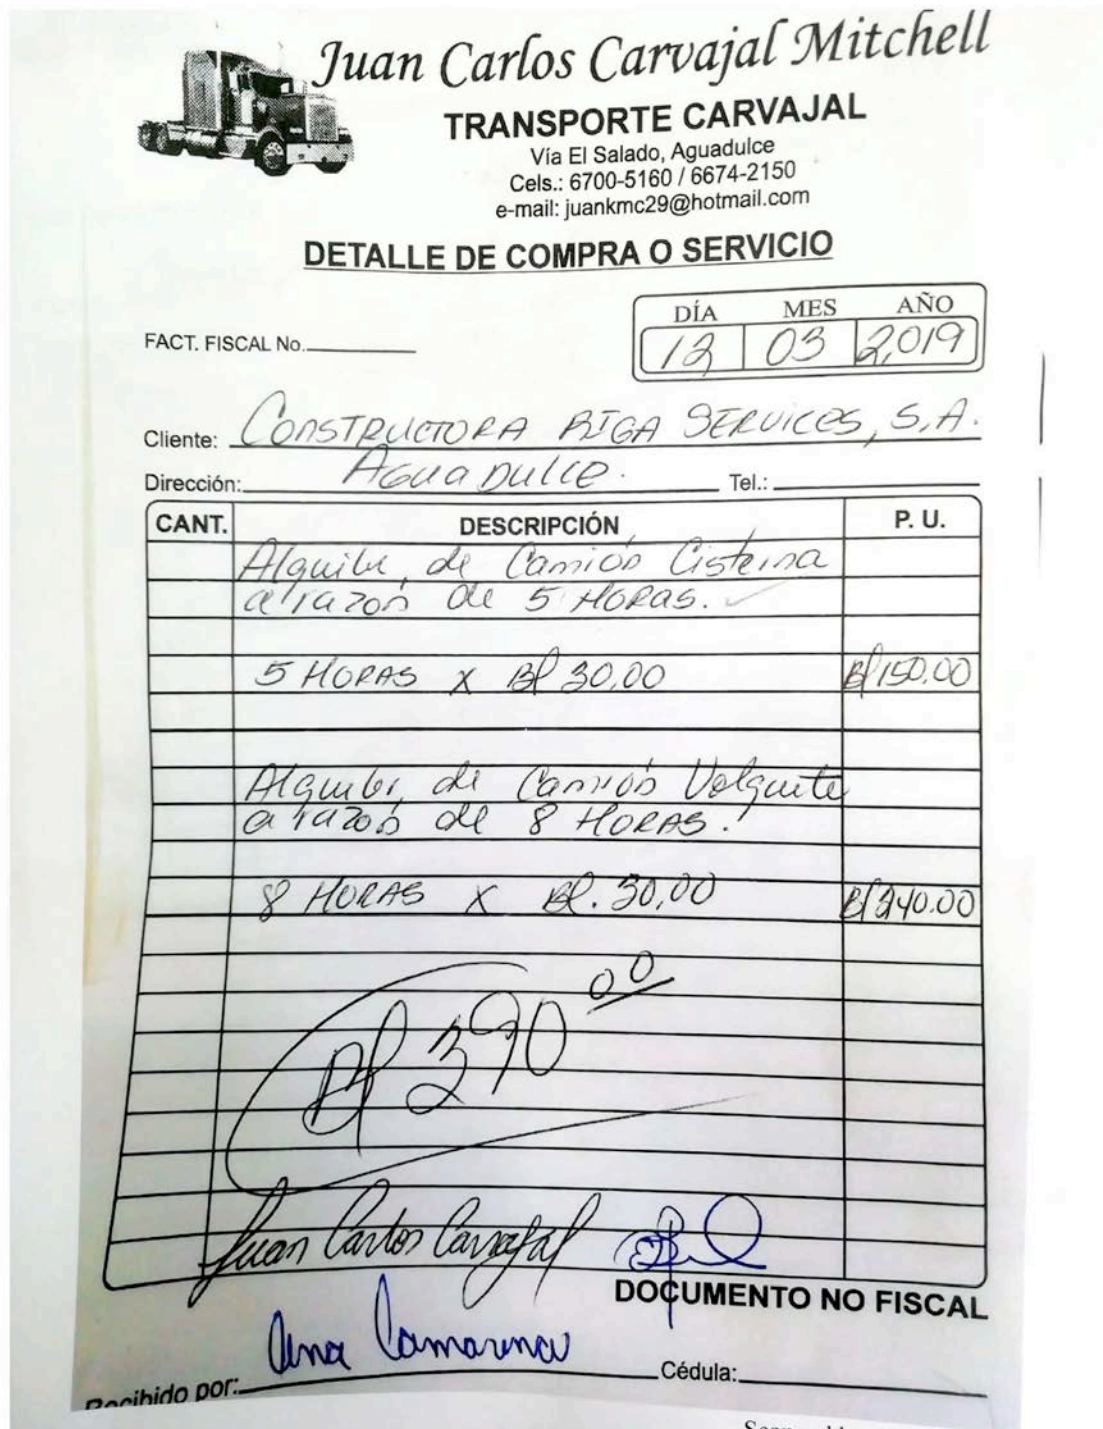 Juan Carlos Carvajal Mitchell
TRANSPORTE CARVAJAL
Vía El Salado, Aguadulce
Cels.: 6700-5160 / 6674-2150
e-mail: juankmc29@hotmail.com
DETALLE DE COMPRA O SERVICIO
DÍA MES AÑO
FACT. FISCAL No.
12 03 2,019
Cliente: CONSTRUCTORA RIGA SERVICES, S.A.
Dirección: AGUADULCE. Tel.:
CANT. DESCRIPCIÓN P. U.
Alquiler, de Camión Cisterna
a razón de 5 HORAS.
5 HORAS X B/ 30,00 B/150.00
Alquiler, de Camión Volquete
a razón de 8 HORAS.
8 HORAS X B/. 30,00 B/240.00
B/ 390.00
Juan Carlos Carvajal
DOCUMENTO NO FISCAL
Ana Camarena
Recibido por: Cédula: